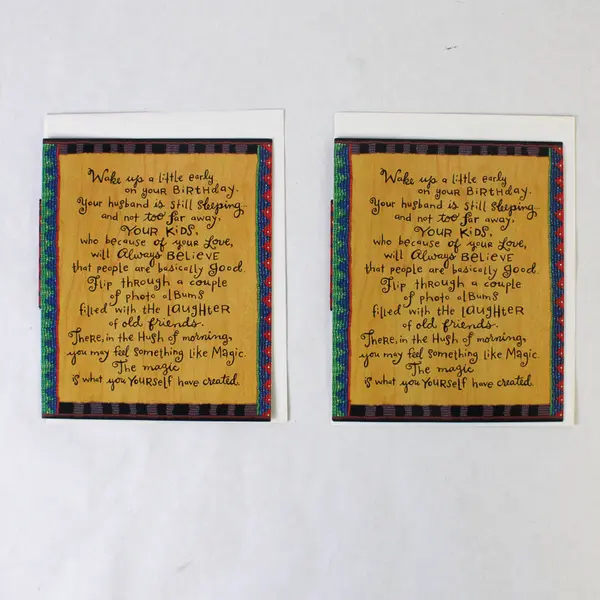 Wake up a little early
on your BiRTHday.
Your husband is still sleeping
and not too far away,
YOUR KiDS,
who because of your Love,
will Always BELiEVE
that people are basically good.
Flip THROUGH a couple
of photo alBUMS
filled with the LAUGHTER
of old friends.
THere, in the Hush of morning,
you may feel something like Magic.
The magic
is what you YOURSELF have created.
Wake up a little early
on your BiRTHday.
Your husband is still sleeping
and not too far away,
YOUR KiDS,
who because of your Love,
will Always BELiEVE
that people are basically good.
Flip THROUGH a couple
of photo alBUMS
filled with the LAUGHTER
of old friends.
THere, in the Hush of morning,
you may feel something like Magic.
The magic
is what you YOURSELF have created.